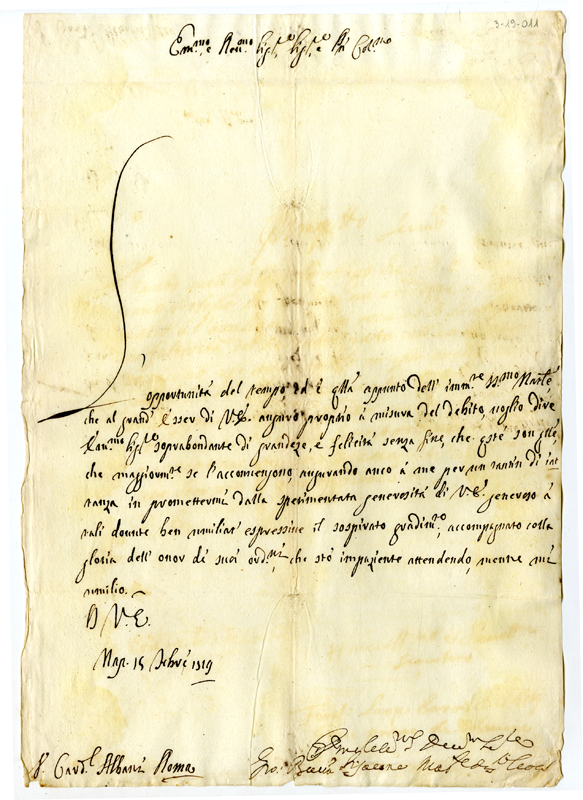 3-19-011
Em.mo e Rev.mo Sig.re Sig.re e P.ron Col.mo
L'opportunità del tempo, ed è q.lla appunto dell' imm.te S.mo Natale
che al grand' esser di V.E. auguro proprio à misura del debito, voglio dire
soprabondante di grandeze, e felicità senza fine, che q.ste son q.lle
che maggiorm.te se l'accomengono, augurando anco à me per un tantin di
tanza in promettermi dalla sperimentata generosità di V.E. generoso à
tali dounte ben umiliat' espressine il sospirato gradim.to, accompagnato colla
gloria dell' onor de suoi ord.ni, che stò impaziente attendendo, mentre mi
umilio.
D V.E.
Nap. 15 1719
S. Card.l Albani Roma